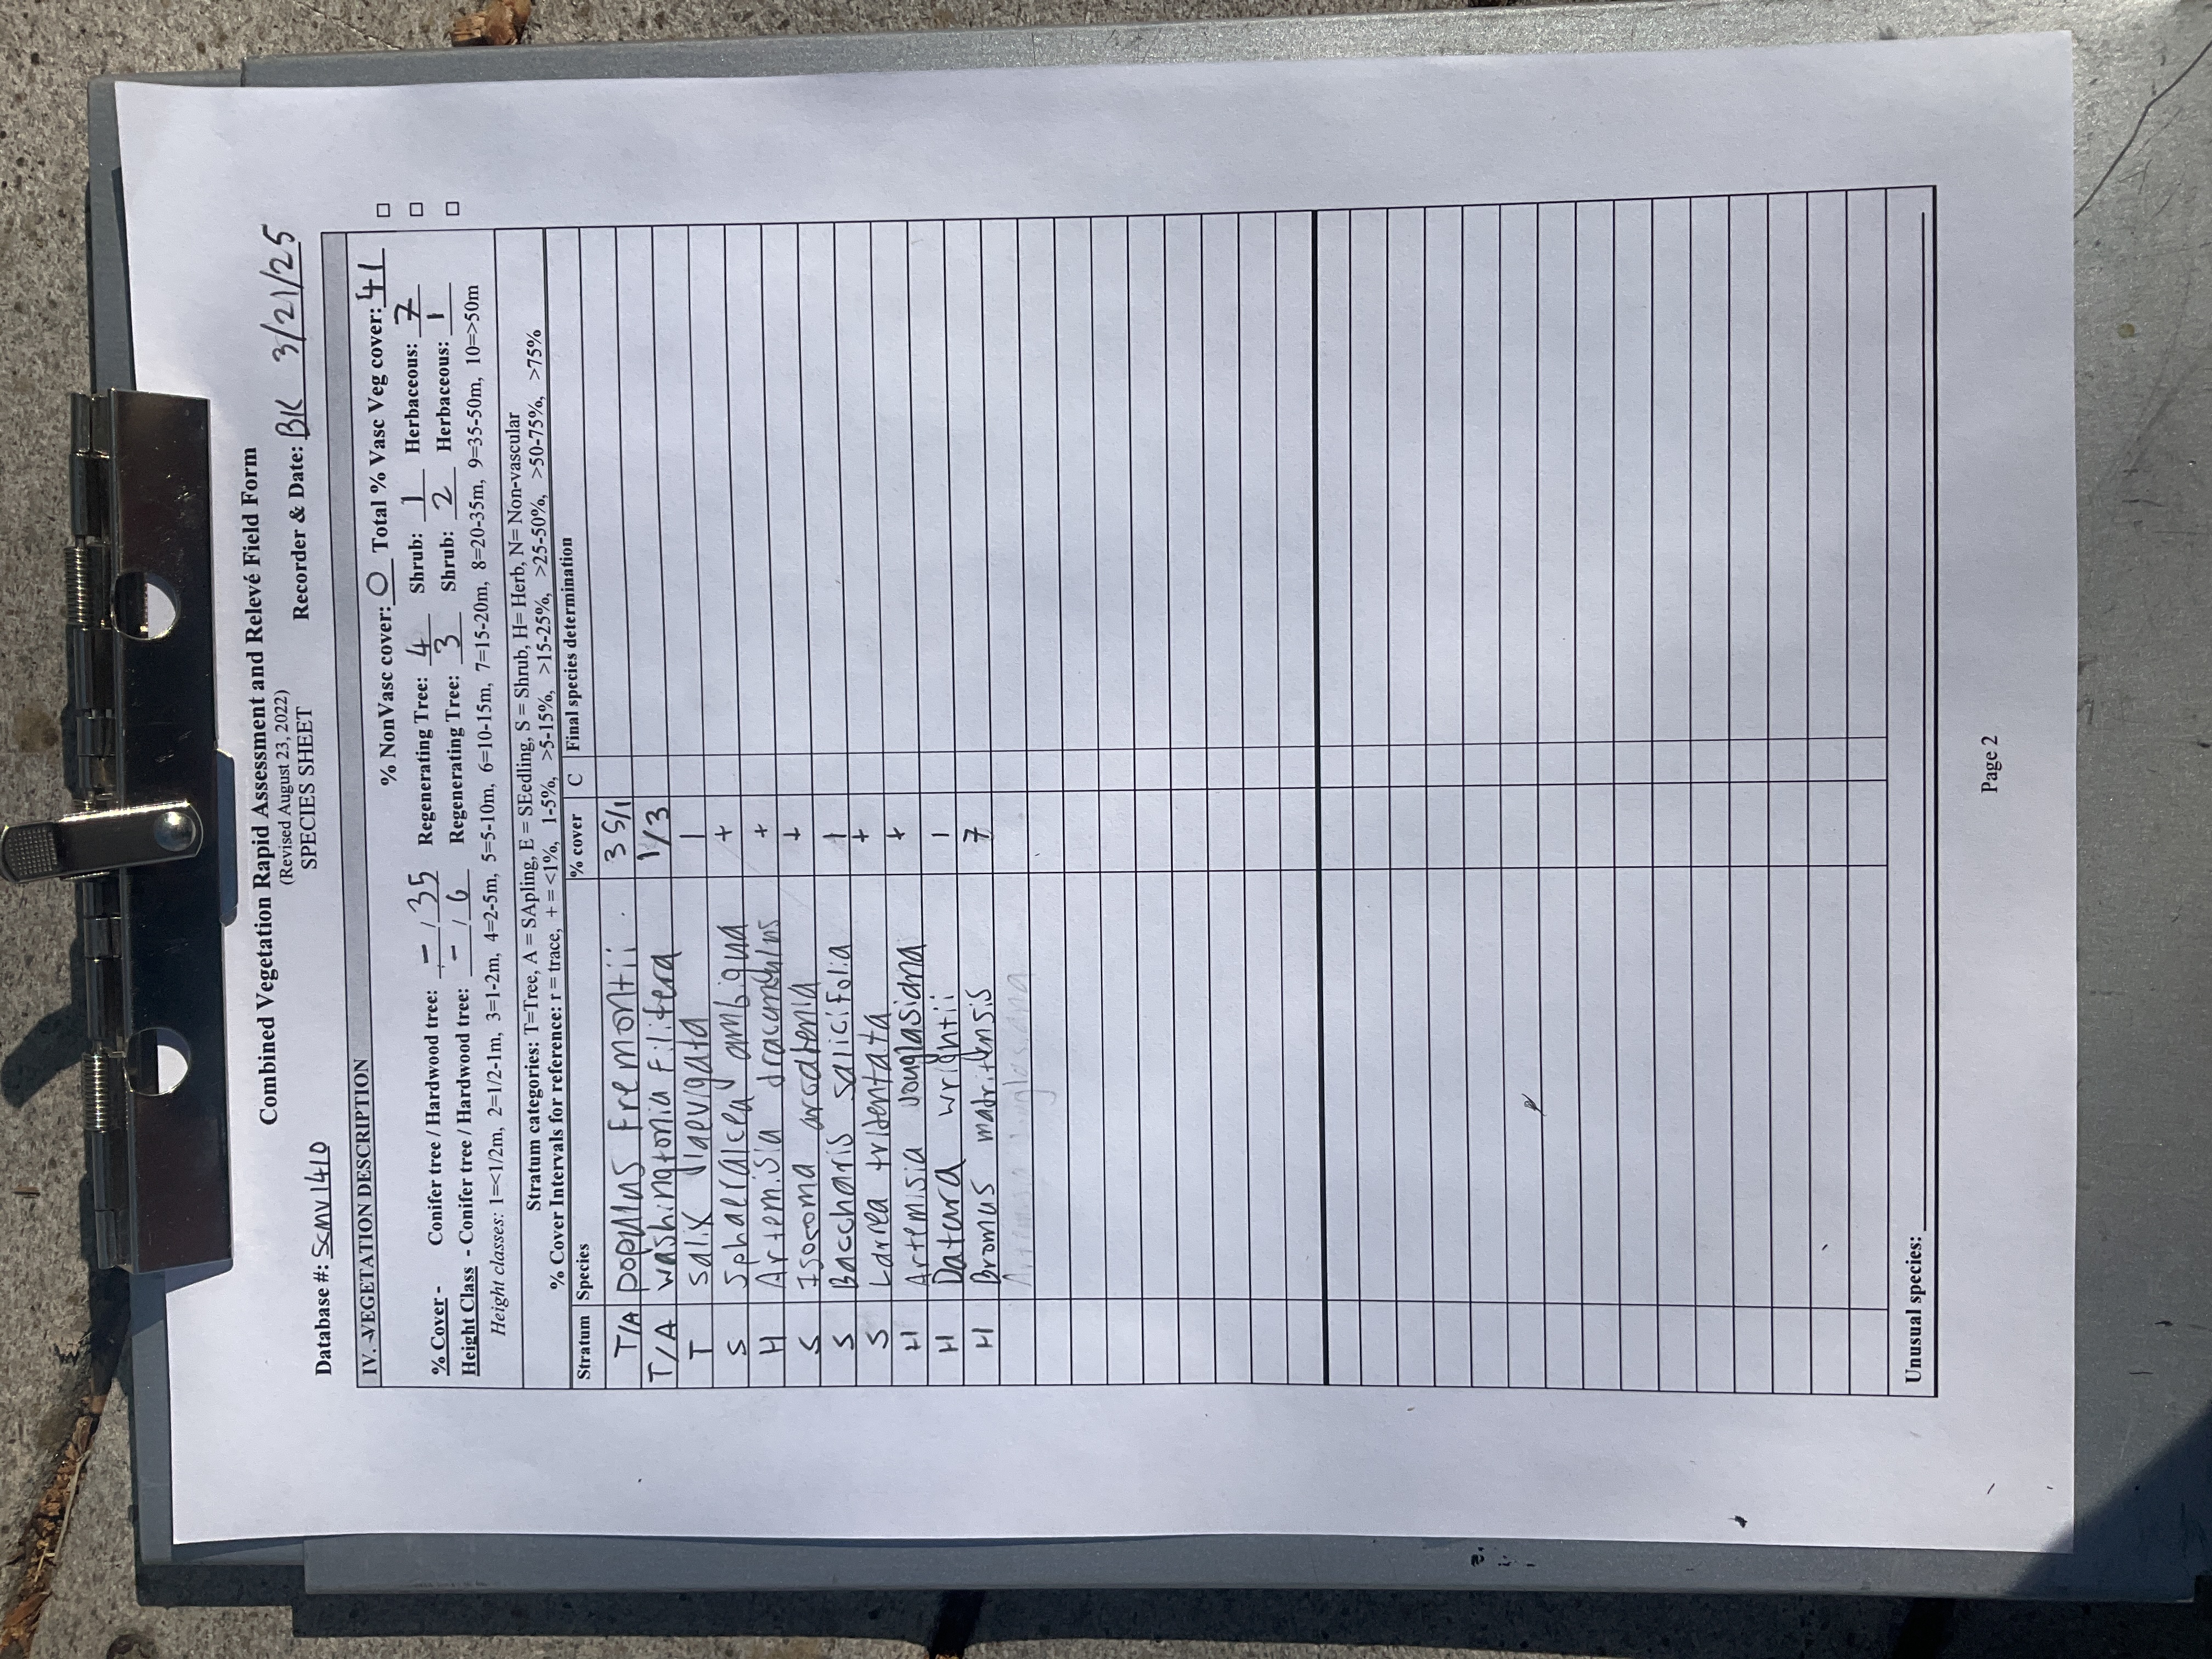 Combined Vegetation Rapid Assessment and Relevé Field Form
(Revised August 23, 2022)
SPECIES SHEET
Database #: SCMV1410 Recorder & Date: BK 3/21/25
IV. VEGETATION DESCRIPTION
% NonVasc cover: 0 Total % Vasc Veg cover: 41 □
% Cover - Conifer tree / Hardwood tree: - / 35 Regenerating Tree: 4 Shrub: 1 Herbaceous: 7 □
Height Class - Conifer tree / Hardwood tree: - / 6 Regenerating Tree: 3 Shrub: 2 Herbaceous: 1 □
Height classes: 1=<1/2m, 2=1/2-1m, 3=1-2m, 4=2-5m, 5=5-10m, 6=10-15m, 7=15-20m, 8=20-35m, 9=35-50m, 10=>50m
Stratum categories: T=Tree, A = SApling, E = SEedling, S = Shrub, H= Herb, N= Non-vascular
% Cover Intervals for reference: r = trace, + = <1%, 1-5%, >5-15%, >15-25%, >25-50%, >50-75%, >75%
Stratum Species % cover C Final species determination
T/A populus fremontii 35/1
T/A washingtonia filifera 1/3
T salix laevigata 1
S Sphaeralcea ambigua +
H Artemisia dracunculus +
S Isocoma acradenia +
S Baccharis salicifolia 1
S Larrea tridentata +
H Artemisia douglasiana +
H Datura wrightii 1
H Bromus madritensis 7
Unusual species:
Page 2